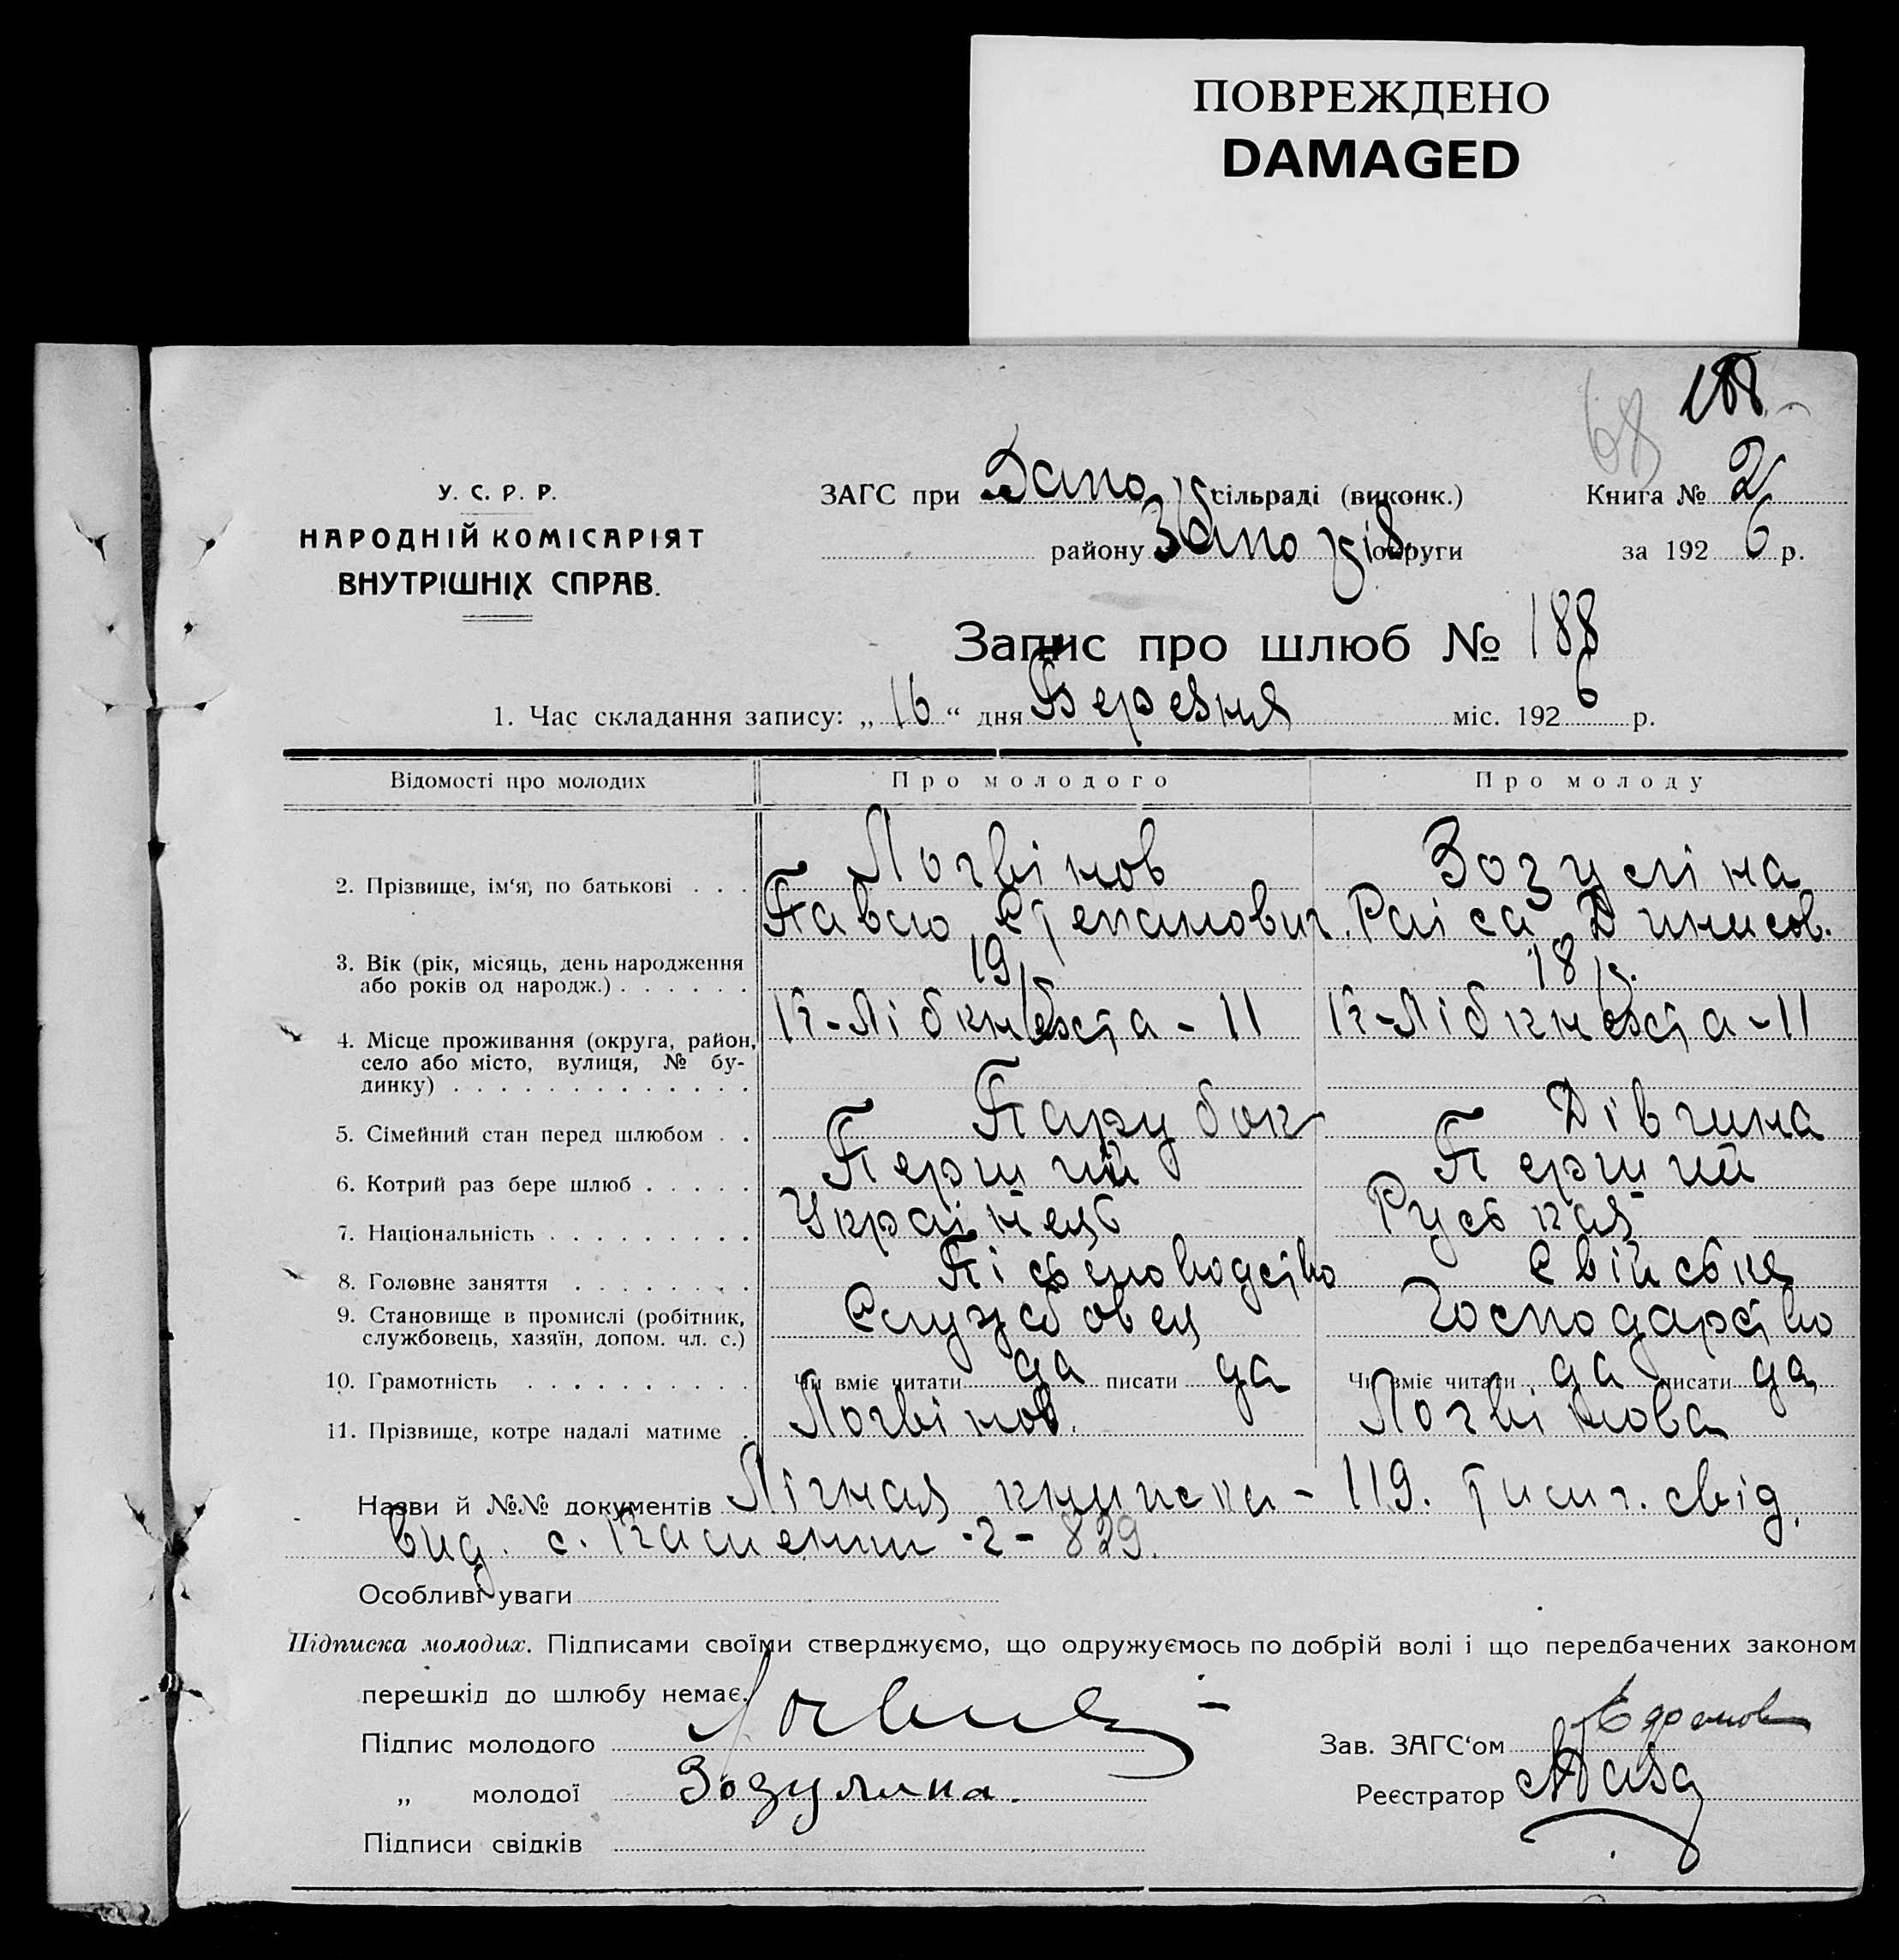 ПОВРЕЖДЕНО
DAMAGED
188
68
У. С. Р. Р.
НАРОДНІЙ КОМІСАРІЯТ
ВНУТРІШНІХ СПРАВ.
ЗАГС при Запо сільраді (виконк.) Книга № 2
району Запоріз округи за 1926 р.
Запис про шлюб № 188
1. Час складання запису: „16“ дня Березня міс. 1926 р.
Відомості про молодих Про молодого Про молоду
Логвінов Зозуліна
2. Прізвище, ім‘я, по батькові . . . Павло Степанович. Раіса Динисов.
3. Вік (рік, місяць, день народження 19 р. 18 р.
або років од народж.) . . . . . .
К-Лібкнехта-11 К-Лібкнехта-11
4. Місце проживання (округа, район,
село або місто, вулиця, № бу-
динку) . . . . . . . . . . . . .
5. Сімейний стан перед шлюбом . . Парубок Дівчина
6. Котрий раз бере шлюб . . . . . Перший Перший
7. Національність . . . . . . . . . Українець Руська
8. Головне заняття . . . . . . . . Свійське
9. Становище в промислі (робітник, Службовец Господарство
службовець, хазяїн, допом. чл. с.)
10. Грамотність . . . . . . . . . . Чи вміє читати да писати да Чи вміє читати да писати да
11. Прізвище, котре надалі матиме . Логвінов. Логвінова
Назви й №№ документів Лічная книжка - 119. свід.
вид. с. 829.
Особливі уваги
Підписка молодих. Підписами своїми стверджуємо, що одружуємось по добрій волі і що передбачених законом
перешкід до шлюбу немає.
Підпис молодого Зав. ЗАГС‘ом
„ молодої Зозулина. Реєстратор
Підписи свідків